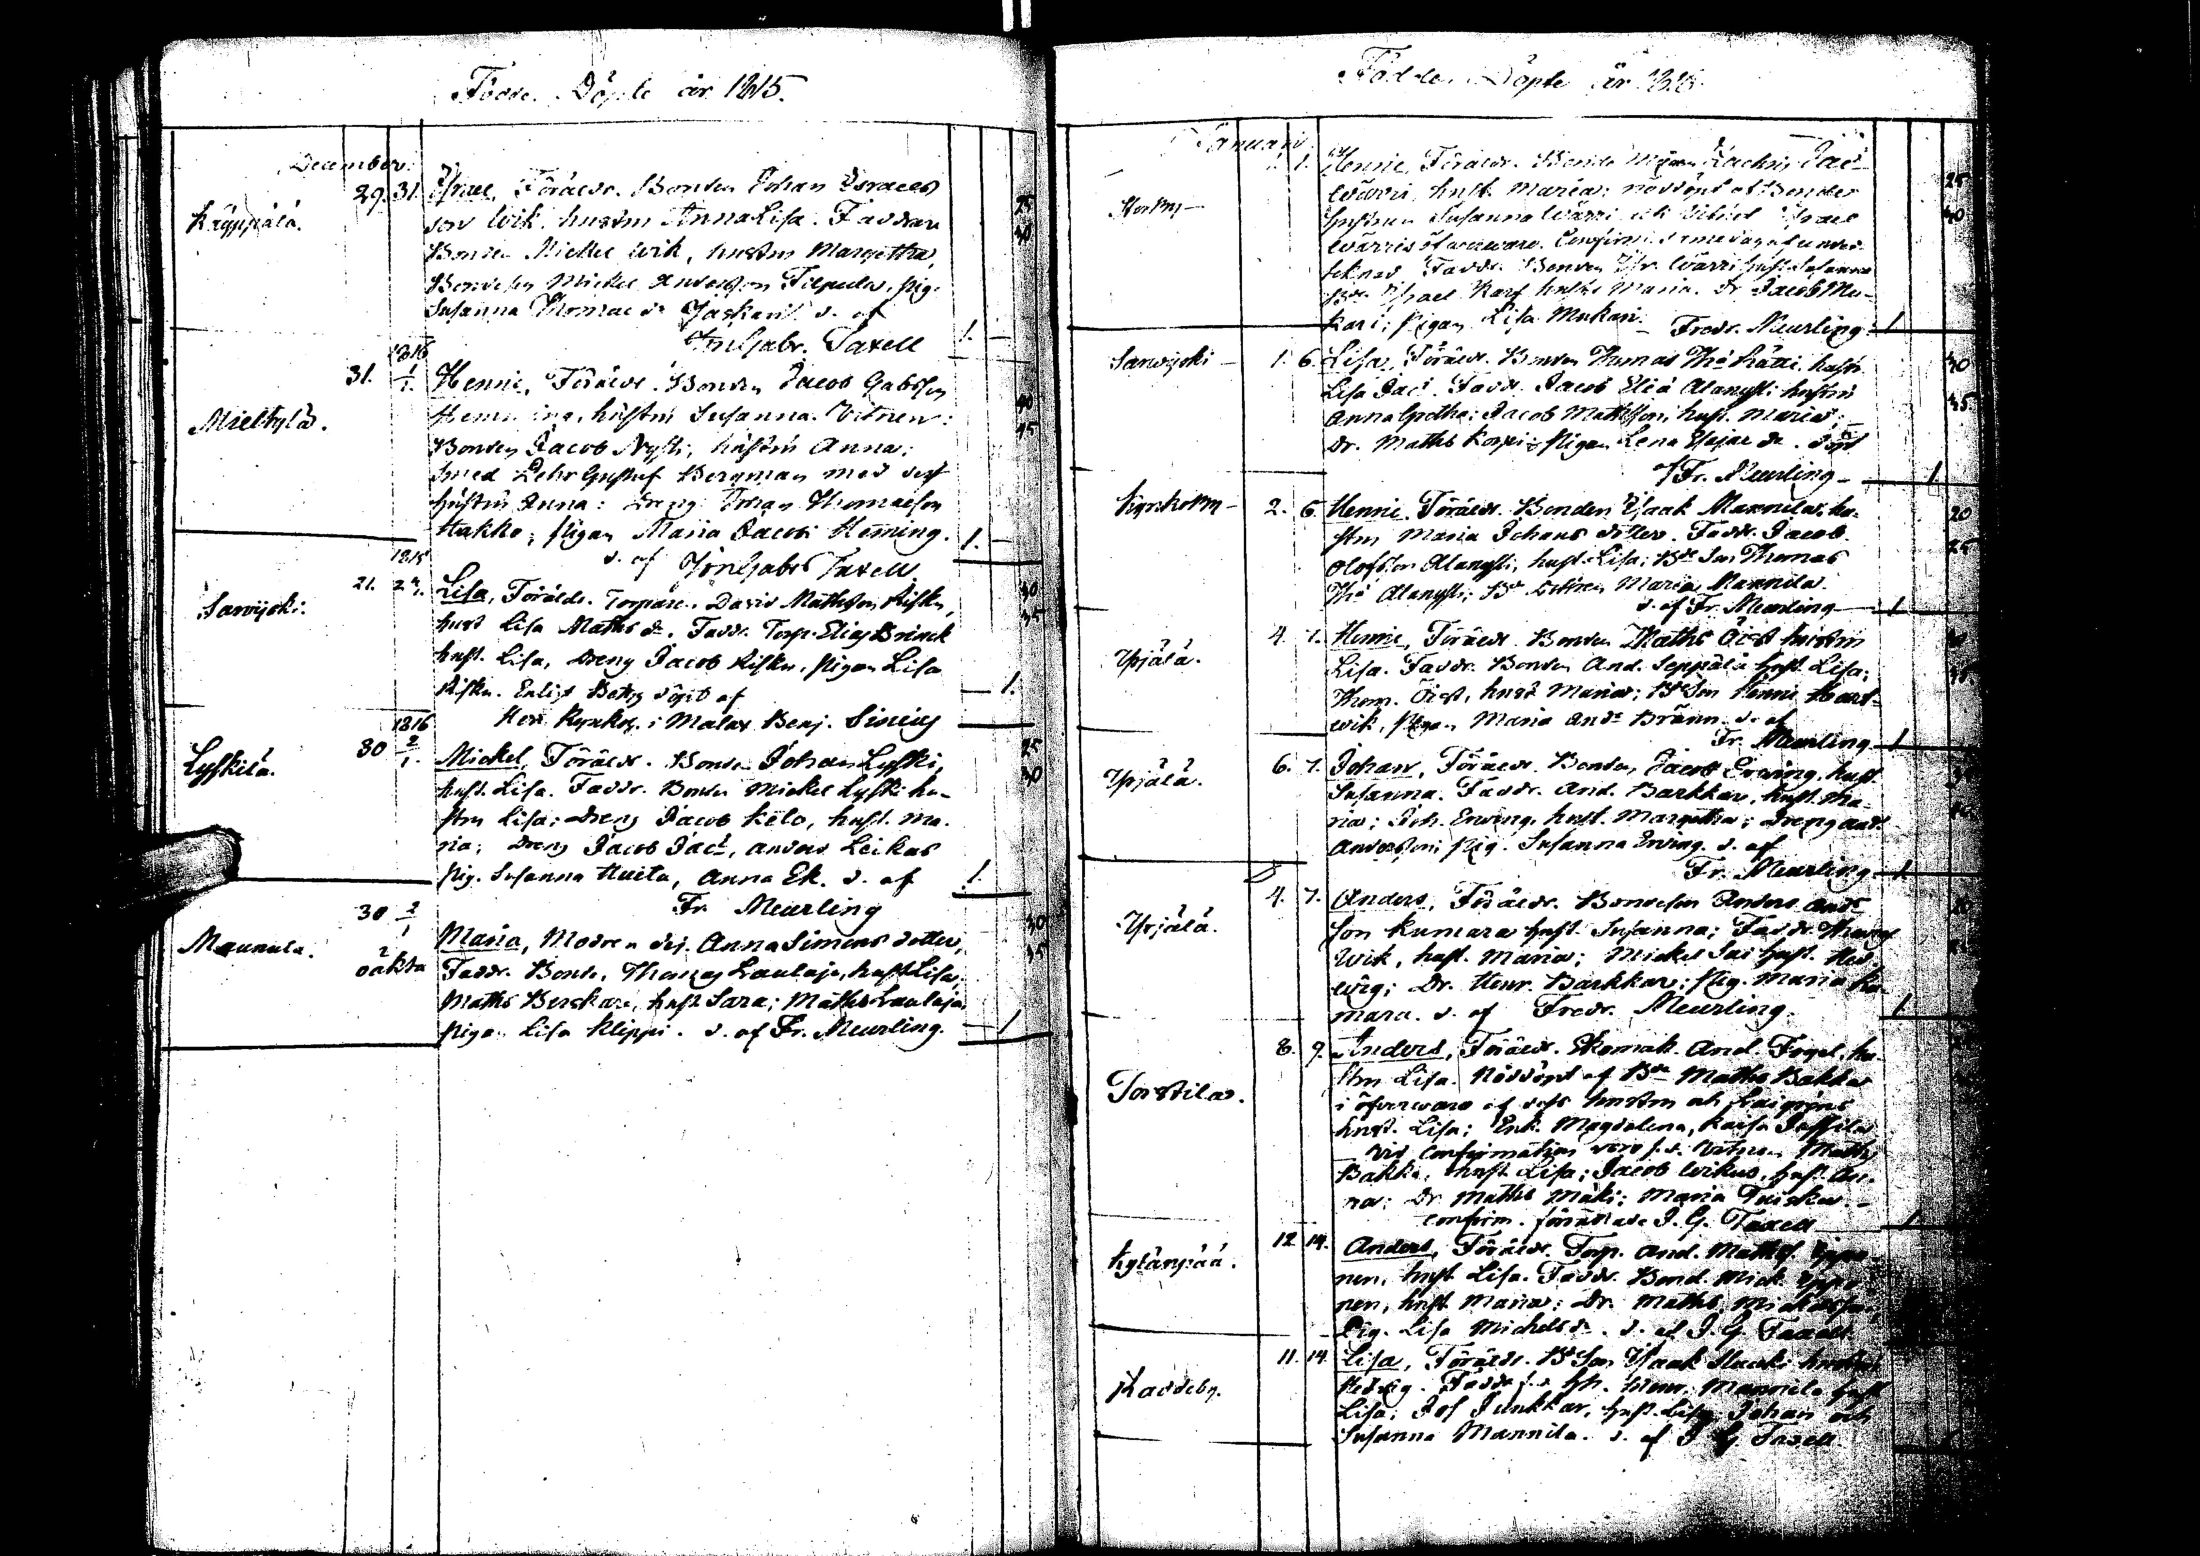 Födde, Döpte år 1815.
December.
Käyppälä.
29. 31. Israel, Föräldr. Bonden Johan Israels
son Wik, hustru Anna Lisa. Faddrar
Bonden Mickel Wik, hustru Margetha,
Bondeson Mickel Andersson Filpula, pig.
Susanna Thomae dr d. af
Joh Gabr. Taxell 1.
25
30
Mieltylä.
31. 1816 1/1. Hennric, Föräldr. Bonden Jacob Gabrson
Henning, hustru Susanna. Vitnen:
Bonden Jacob Nysti, hustru Anna;
Smed Lehr Gustaf Bergman med dess
hustru Anna: Dreng Johan Thomasson
Hukko, pigan Maria Jacobs Henning. 1.
d. af Joh Gabr Taxell
40
45
Sarvijoki.
1815
21. 24. Lisa, Föräldr. Torpare. David Mathsson Risku,
hust Lisa Maths dr. Faddr. Torp. Elias Brinck
hust. Lisa, Dreng Jacob Risku, pigan Lisa
Risku. Enligt Betyg döpt af 1.
Herr Kyrkoh. i Malax Benj. Sirelius
30
35
Lyskilä.
1816
30 2/1. Mickel, Föräldr. Bonden Johan Lyski,
hust. Lisa. Faddr. Bonden Mickel Lyski hu-
stru Lisa; Dreng Jacob Kelo, hust. Ma-
ria; Dreng Jacob Jacs, Anders Leikas
pig. Susanna Huita, Anna Ek. d. af 1.
Fr Meurling
25
30
Maunula.
30 2/1
oäkta
Maria, Modren Dej. Anna Simons dotter,
Faddr. Bonde, Thomas Laulaja, hust Lisa,
Maths Berskar, hust Sara; Maths Laulaja,
pigan Lisa Klippi. d. af Fr. Meurling. 1
30
35
Födde, Döpte år 1816.
Januari.
1. Hennric, Föräldr. Bonde
Wärri, hust. Maria; nöddöpt af Bonden
hustrun Susanna Wärri och Israel
Wärris öfverwaro. Confirm. af under-
teknad Faddr. Bonden Isr. Wärri hust Susanna
Bde Israel Karf hustru Maria. Dr Jacob Mu-
kari; pigan Lisa Mukari. Fredr. Meurling. 1
25
30
Sarvijoki
1. 6. Lisa, Föräldr. Bonden Thomas Ths hustr.
Lisa Jacs. Faddr. Jacob Elis Alanysti hustru
Anna Gretha; Jacob Mathsson, hust. Maria;
Dr. Maths Korpi; pigan Lena Esajae dr. döpt
Fr. Meurling 1
40
45
Kyrkoby
2. 6. Hennric. Föräldr. Bonden Isaak Mannila, hu-
stru Maria Johans dotter. Faddr. Jacob
Olofsson Alanysti, hust. Lisa; Bde Son Thomas
Ths Alanysti; Bde Dottren Maria Mannila.
d. af Fr. Meurling 1
20
25
Yrjälä.
4. 7. Hennric, Föräldr. Bonden Maths Öist hustru
Lisa. Faddr. Bonden And. Seppälä hust. Lisa;
Thom. Öist, hust Maria; Bde Son Hennric Hart-
wik, pigan Maria Ands Bränn. d. af
Fr. Meurling 1
Yrjälä.
6. 7. Johan, Föräldr. Bonden, Jacob Erwing, hust.
Susanna. Faddr. And. Barkkar, hust. Ma-
ria; Joh. Erwing, hust. Margetha; Dreng And.
Andersson; pig. Susanna Erwing. d. af
Fr. Meurling 1
Yrjälä.
4. 7. Anders, Föräldr. Bondeson Anders Ands
son Kumara hust. Susanna; Faddr. Thomas
Wik, hust. Maria; Mickel Sai hust. Hed-
wig; Dr. Henr. Barkkar; pig. Maria Ku-
mara. d. af Fredr. Meurling. 1
Torstila.
8. 9. Anders, Föräldr. Skomak. And. Fogel, hu-
stru Lisa. Nöddöpt af Bde Maths Bakka
i öfverwaro af dess hustru och
hust. Lisa; Enk. Magdalena, Kaisa
Vid Confirmation voro f. d. Vitnen Maths
Bakka, hust Lisa; Jacob Wikus, hust. An-
na; Dr Maths Mäki; Maria
confirm. förrättade J. G. Taxell 1
Kylänpää.
12 14. Anders, Föräldr. Torp. And. Maths.
nen, hust Lisa. Faddr. Bond. Mick
nen, hust Maria; Dr Maths Mickelsson,
Pig. Lisa Michels dr. d. af J. G. Taxell.
Kaddeby.
11. 14 Lisa, Föräldr. Bde Son Isaak hustru
Hedvig. Faddr. Henr. Mannila hust
Lisa; Jos Junkkar, hust. Lisa Johan och
Susanna Mannila. d. af J G. Taxell.